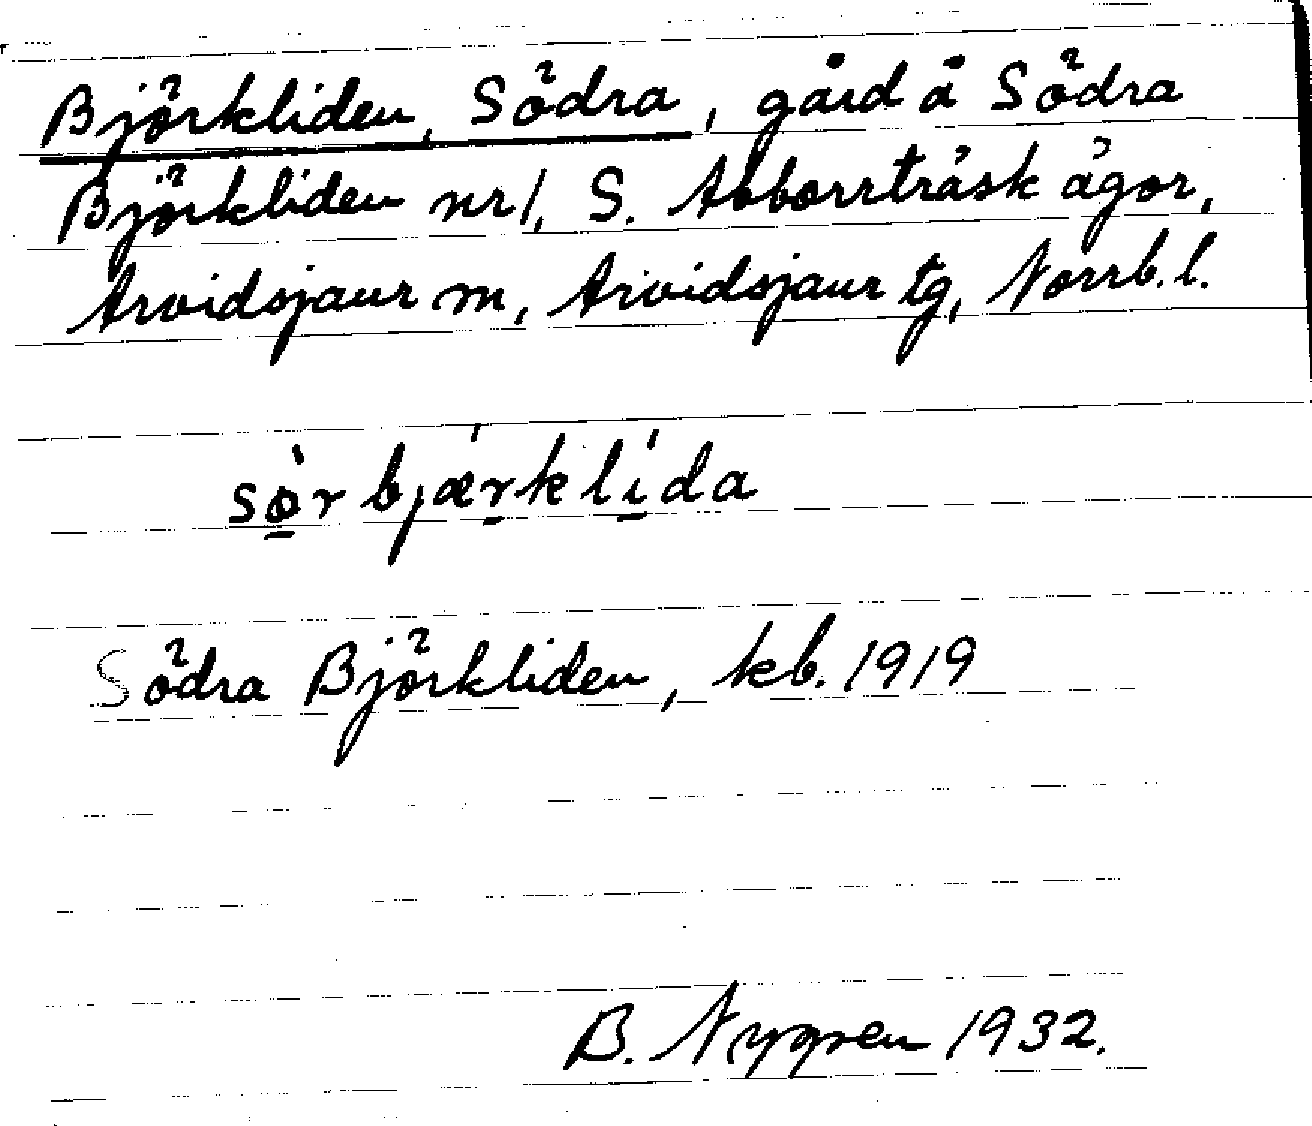 Björkliden, Södra, gård å Södra
Björkliden nr 1, S. Abborrträsk ägor,
Arvidsjaur m, Arvidsjaur tg, Norrb. l.
sø̀rbjǽrklída
Södra Björkliden, kb. 1919
B. Nygren 1932.